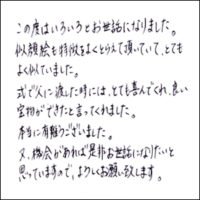 この度はいろいろとお世話になりました。
似顔絵も特徴をよくとらえて頂いていて、とても
よく似ていました。
式で父に渡した時には、とても喜んでくれ、良い
宝物ができたと言ってくれました。
本当に有難うございました。
又、機会があれば是非お世話になりたいと
思っていますので、よろしくお願い致します。